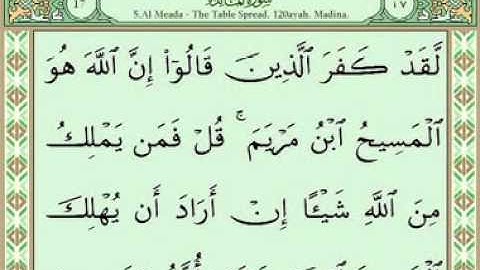 5.Al Meada - The Table Spread. 120ayah. Madina.
١٧
لَّقَدْ كَفَرَ ٱلَّذِينَ قَالُوٓا۟ إِنَّ ٱللَّهَ هُوَ
ٱلْمَسِيحُ ٱبْنُ مَرْيَمَ ۚ قُلْ فَمَن يَمْلِكُ
مِنَ ٱللَّهِ شَيْـًٔا إِنْ أَرَادَ أَن يُهْلِكَ